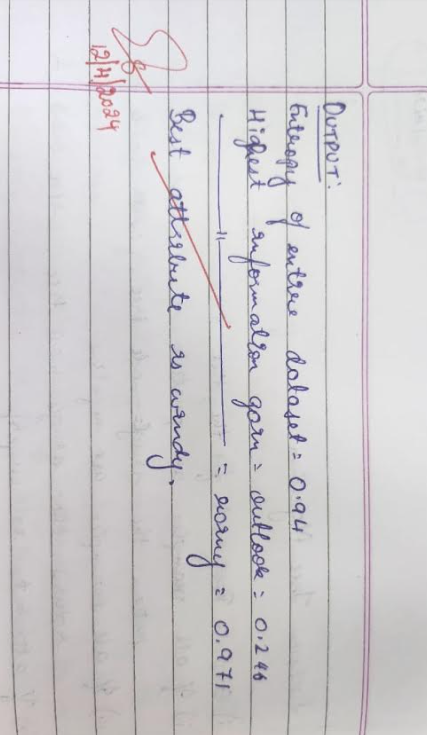 OUTPUT:
Entropy of entire dataset = 0.94
Highest information gain = outlook = 0.246
—— " —— = rainy = 0.971
Best attribute is windy.
12/4/2024